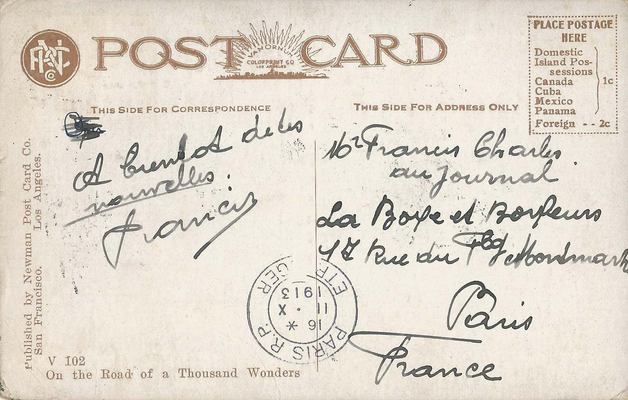 POST CARD
VANORNUM
COLORPRINT CO
LOS ANGELES
PLACE POSTAGE
HERE
Domestic
Island Pos-
sessions
Canada
Cuba
Mexico
Panama
1c
Foreign - - 2c
THIS SIDE FOR CORRESPONDENCE
THIS SIDE FOR ADDRESS ONLY
A bientot de tes
nouvelles.
Francis
Mr Francis Charles
au journal
La Boxe et Boxeurs
17 Rue du Fbg Montmartre
Paris
France
PARIS R.P.
ETRANGER
16 *
11 . X
1913
Published by Newman Post Card Co.
San Francisco. Los Angeles.
V 102
On the Road of a Thousand Wonders